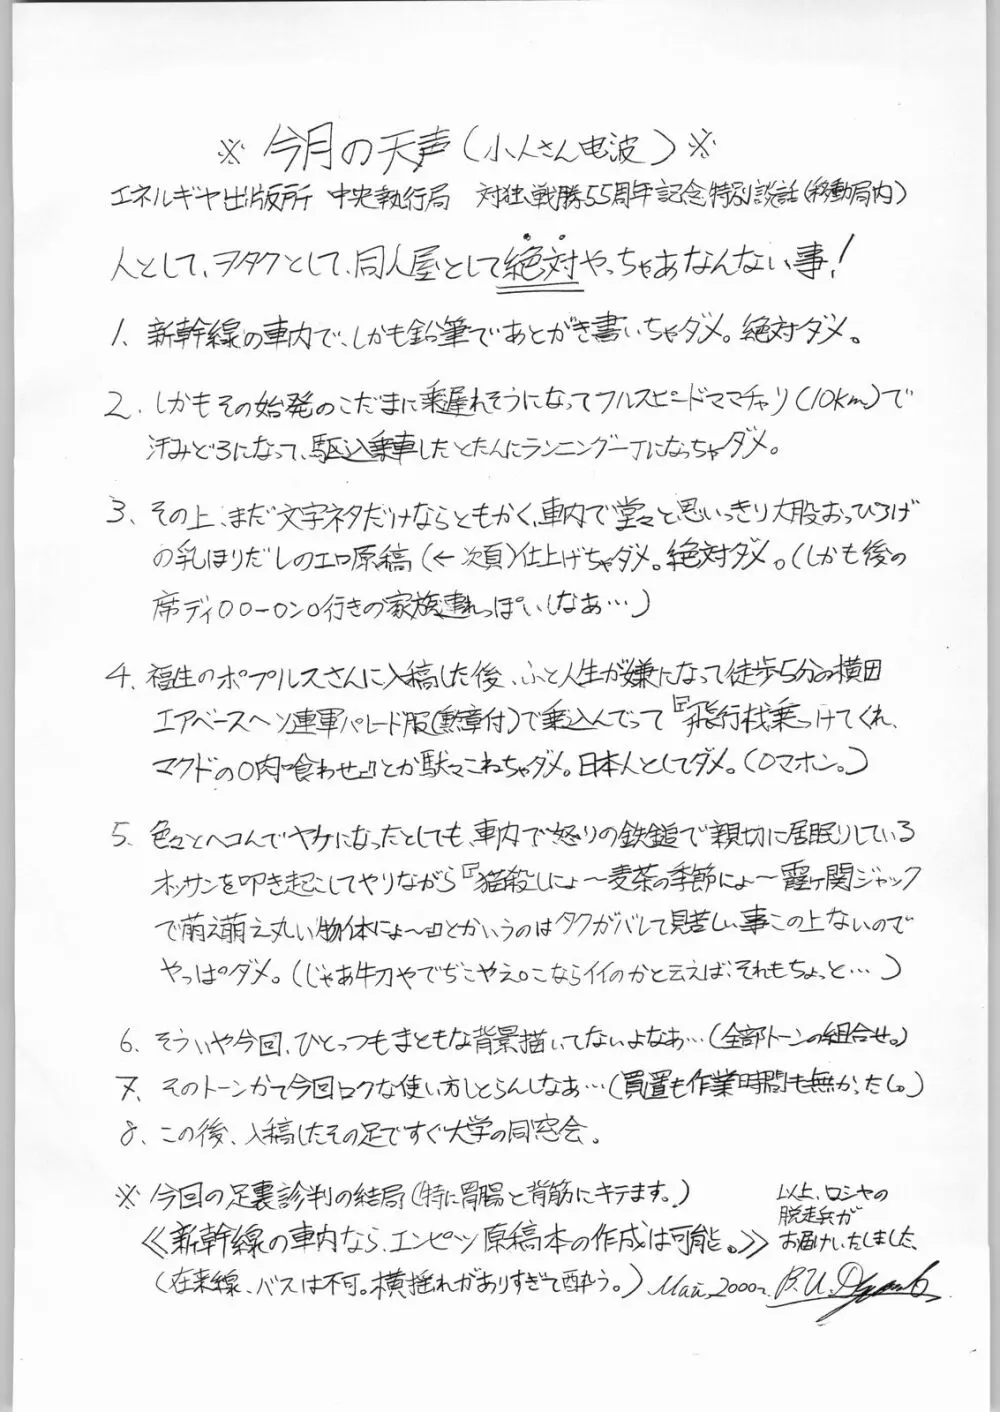 ※ 今月の天声(小人さん电波) ※
エネルギヤ出版所 中央執行局 対独戦勝55周年記念特別談話(移動局内)
人として、ヲタクとして、同人屋として絶対やっちゃあなんない事!
1、新幹線の車内で、しかも鉛筆であとがき書いちゃダメ。絶対ダメ。
2、しかもその始発のこだまに乗遅れそうになってフルスピードママチャリ(10km)で
汗みどろになって、駆込乗車したとたんにランニング一丁になっちゃダメ。
3、その上、まだ文字ネタだけならともかく、車内で堂々と思いっきり大股おっぴろげ
の乳ほりだしのエロ原稿(←次頁)仕上げちゃダメ。絶対ダメ。(しかも後の
席ディ○○ー○ン○行きの家族連れっぽいしなあ…)
4、福生のポプルスさんに入稿した後、ふと人生が嫌になって徒歩5分の横田
エアベースへソ連軍パレード服(勲章付)で乗込んでって『飛行机乗っけてくれ、
マクドの○肉喰わせ』とか駄々こねちゃダメ。日本人としてダメ。(○マホン。)
5、色々とヘコんでヤケになったとしても、車内で怒りの鉄鎚で親切に居眠りしている
オッサンを叩き起こしてやりながら『猫殺しにょ〜麦茶の季節にょ〜霞ヶ関ジャック
で萌え萌え丸い物体にょ〜』とかいうのはタクがバレして見苦しい事この上ないので
やっぱダメ。(じゃあ牛刀やでぢこやえ。こならイイのかと云えば、それもちょっと…)
6、そういや今回、ひとっつもまともな背景描いてないよなあ…(全部トーンの組合せ。)
7、そのトーンかて今回ロクな使い方しとらんしなあ…(買置も作業時間も無かったし。)
8、この後、入稿したその足ですぐ大学の同窓会。
※ 今回の足裏診判の結局(特に胃腸と背筋にキテます。)
≪新幹線の車内なら、エンピツ原稿本の作成は可能。≫
(在来線、バスは不可。横揺れがありすぎて酔う。)
以上、ロシヤの
脱走兵が
お届けいたしました、
Май, 2000г. В.И.